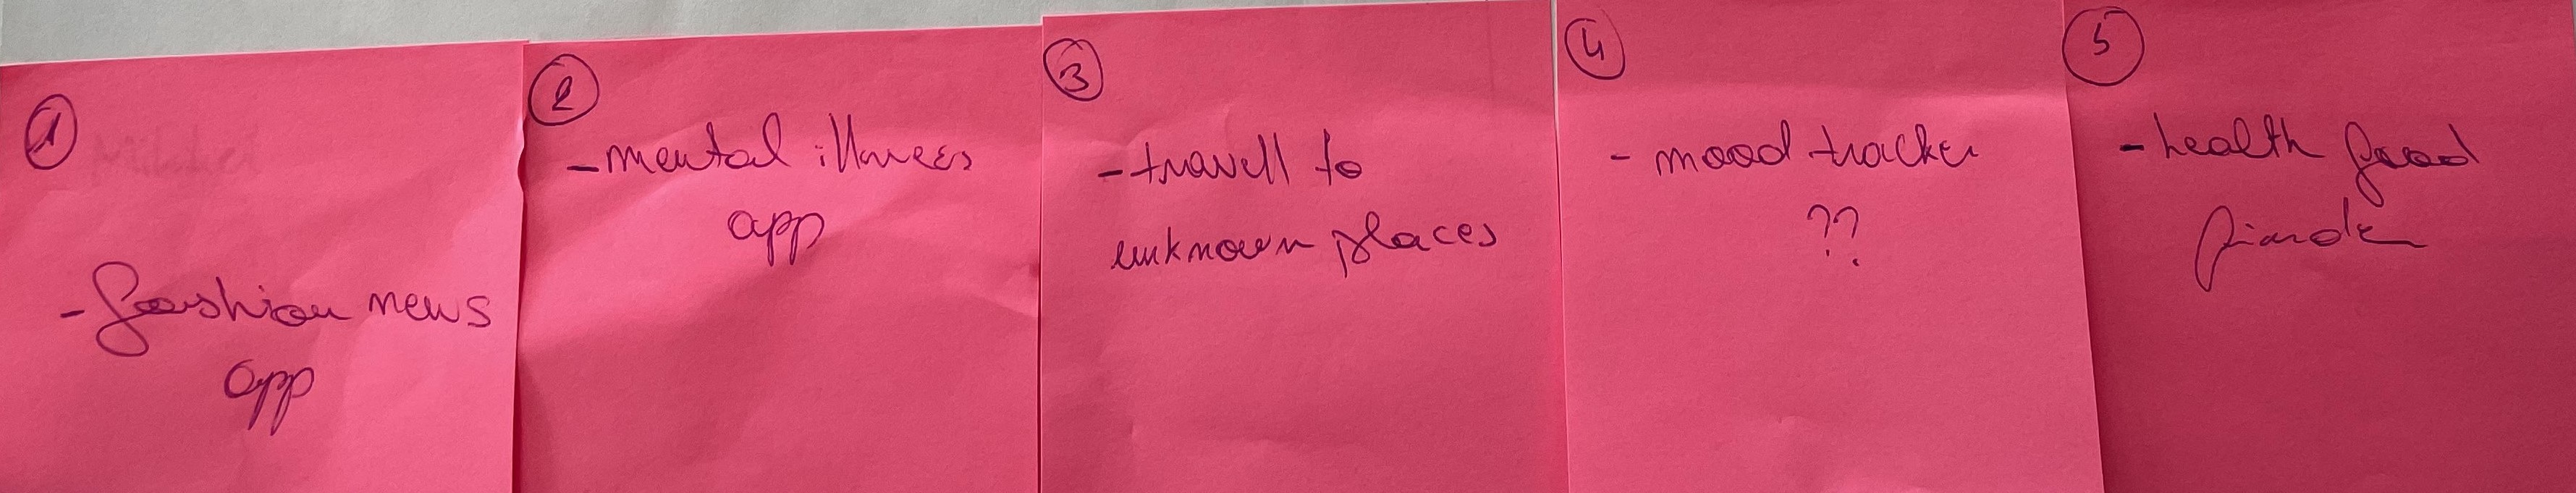 1
- fashion news
app
2
- mental illness
app
3
- travell to
unknown places
4
- mood tracker
??
5
- health food